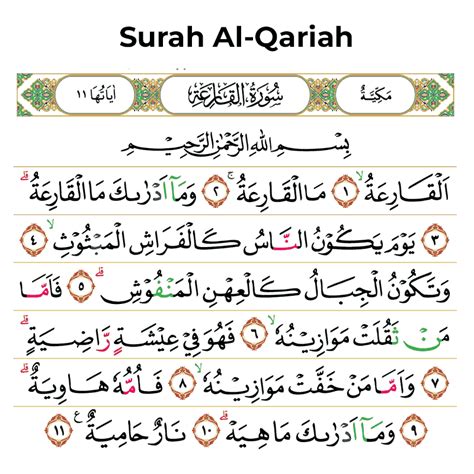 Surah Al-Qariah
مَكِيَّةٌ سُورَةُ الْقَارِعَةِ اٰيَاتُهَا ١١
بِسْمِ اللّٰهِ الرَّحْمٰنِ الرَّحِيْمِ
اَلْقَارِعَةُۙ ١ مَا الْقَارِعَةُۚ ٢ وَمَآ اَدْرٰىكَ مَا الْقَارِعَةُۗ
٣ يَوْمَ يَكُوْنُ النَّاسُ كَالْفَرَاشِ الْمَبْثُوْثِۙ ٤
وَتَكُوْنُ الْجِبَالُ كَالْعِهْنِ الْمَنْفُوْشِۗ ٥ فَاَمَّا
مَنْ ثَقُلَتْ مَوَازِيْنُهٗۙ ٦ فَهُوَ فِيْ عِيْشَةٍ رَّاضِيَةٍۗ
٧ وَاَمَّا مَنْ خَفَّتْ مَوَازِيْنُهٗۙ ٨ فَاُمُّهٗ هَاوِيَةٌۗ
٩ وَمَآ اَدْرٰىكَ مَا هِيَهْۗ ١٠ نَارٌ حَامِيَةٌ ࣖ ١١